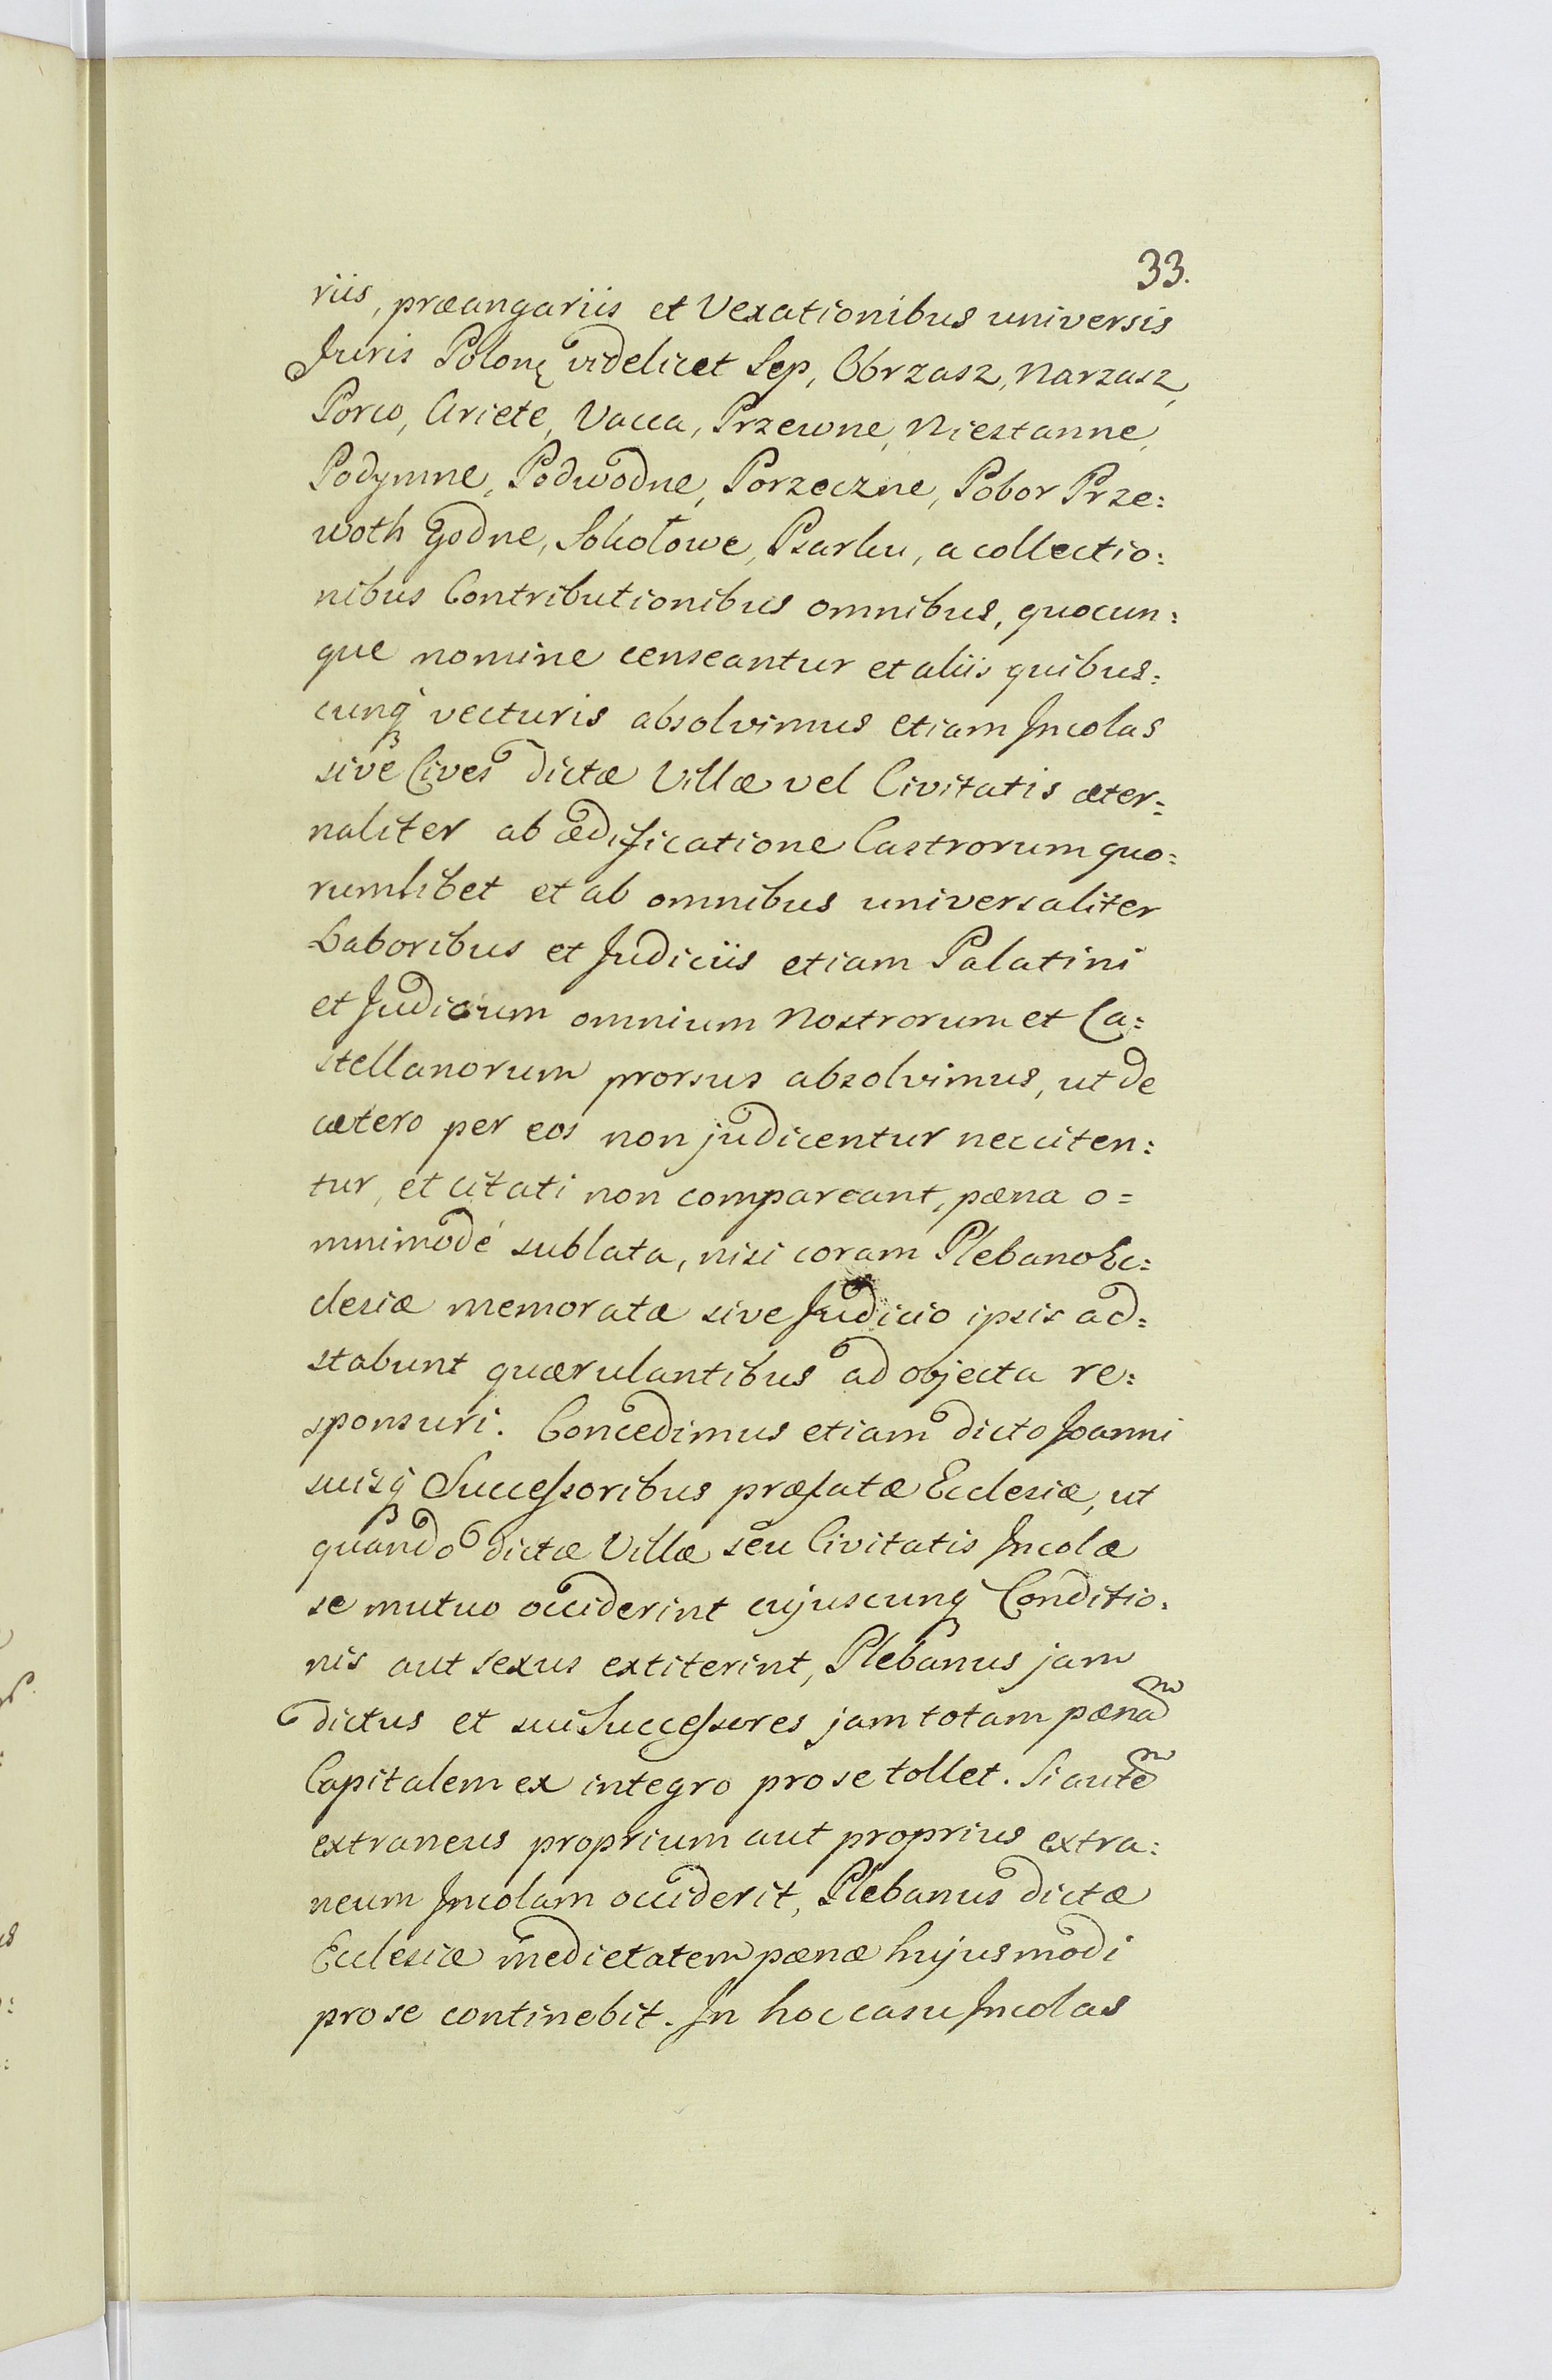 33.
riis, præangariis et Vexationibus universis
Juris Polonę videlicet Sep, Obrzasz, Narzasz,
Porco, Ariete, Vacca, Przewne, Niestanne,
Podymne, Podwodne, Porzeczne, Pobor Prze:
woth Godne, Sokołowe, Psarku, a collectio:
nibus Contributionibus omnibus, quocun:
que nomine censeantur et aliis quibus:
cunq vecturis absolvimus etiam Incolas
sive Cives dictæ Villæ vel Civitatis æter:
naliter ab ædificatione Castrorum quo:
rumlibet et ab omnibus universaliter
Laboribus et Judiciis etiam Palatini
et Judicium omnium Nostrorum et Ca:
stellanorum prorsus absolvimus, ut de
cætero per eos non judicentur nec citen:
tur, et citati non compareant, pæna o=
mnimodé sublata, nisi coram Plebano Ec:
clesiæ memoratæ sive Judicio ipsis ad:
stabunt quærulantibus ad objecta re:
sponsuri. Concedimus etiam dicto Joanni
suisq Successoribus præfatæ Ecclesiæ, ut
quando dictæ Villæ seu Civitatis Incolæ
se mutuo occiderint cujuscunq Conditio.
nis aut sexus extiterint, Plebanus jam
dictus et sui Successores jam totam pænam
Capitalem ex integro pro se tollet. Si autem
extraneus proprium aut proprius extra:
neum Incolam occiderit, Plebanus dictæ
Ecclesiæ medietatem pænæ hujusmodi
pro se continebit. In hoc casu Incolas